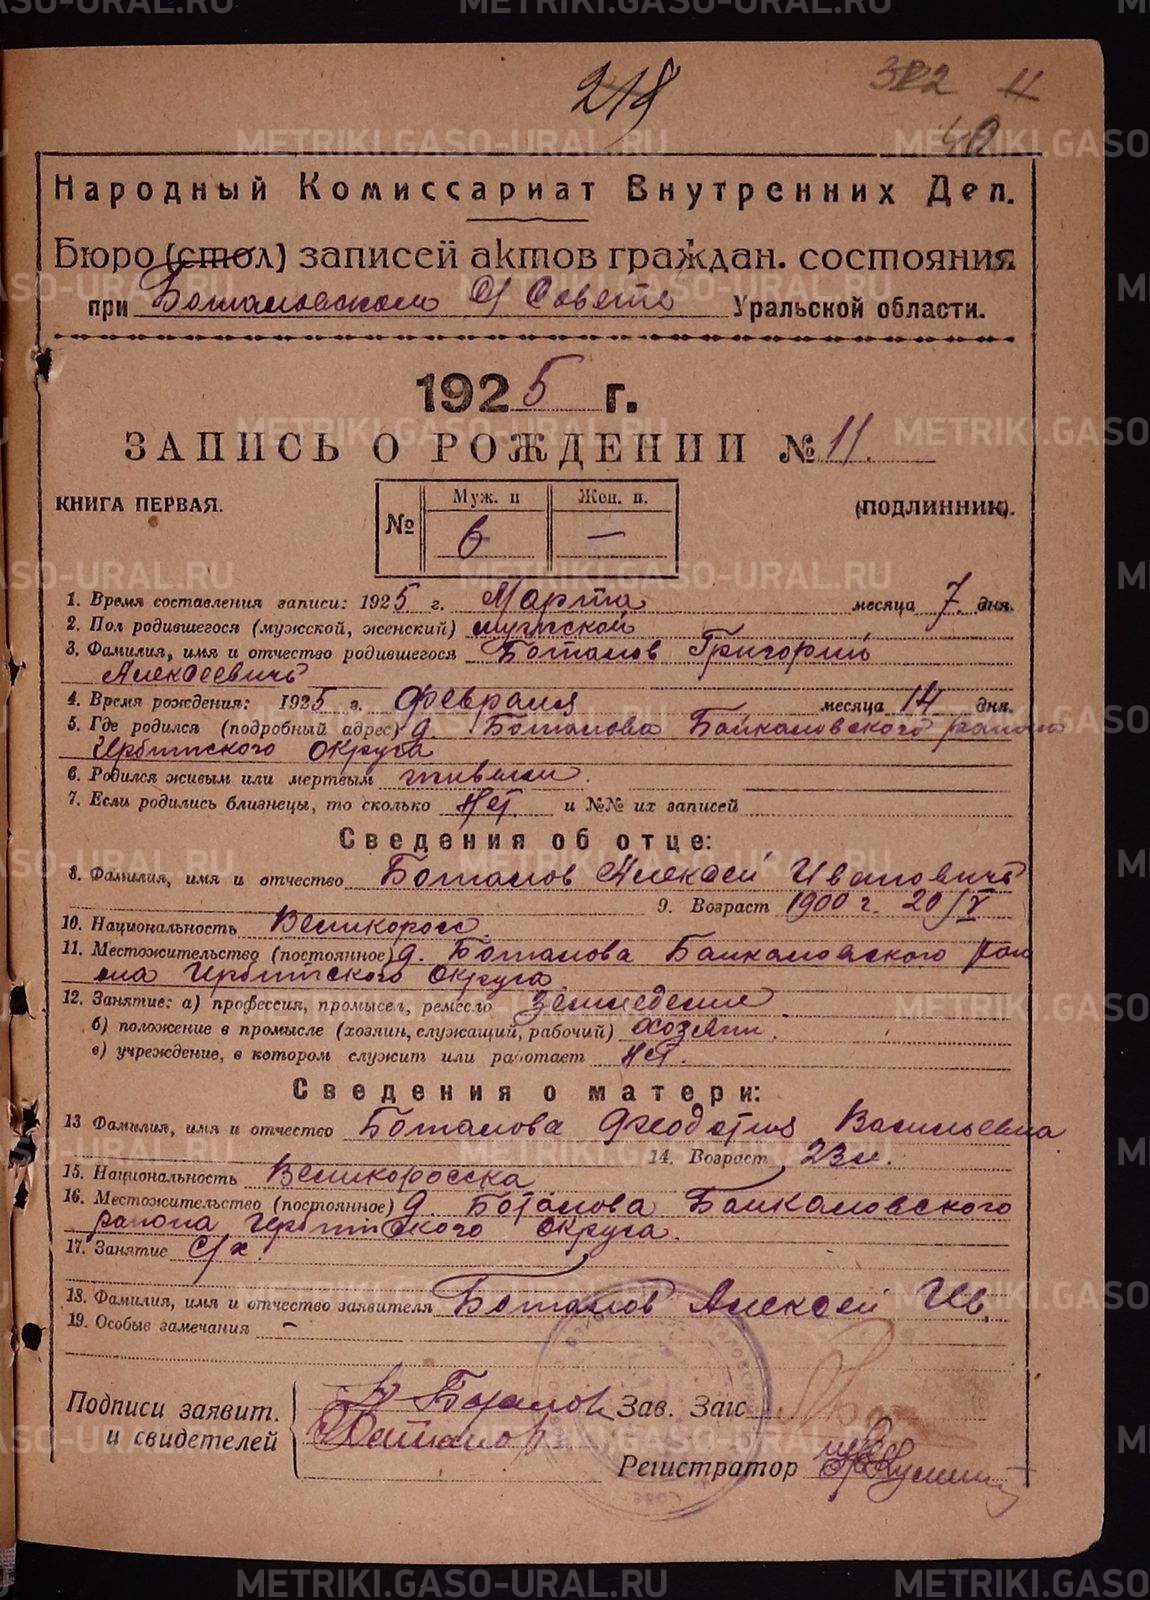 218
382 11
40
Народный Комиссариат Внутренних Дел.
Бюро (стол) записей актов граждан. состояния
при Боталовском С/Совете Уральской области.
1925 г.
ЗАПИСЬ О РОЖДЕНИИ № 11.
КНИГА ПЕРВАЯ.
(ПОДЛИННИК).
№ Муж. п Жен. п.
6 —
1. Время составления записи: 1925 г. Марта месяца 7 дня.
2. Пол родившегося (мужской, женский) мужской
3. Фамилия, имя и отчество родившегося Боталов Григорий
Алексеевичь
4. Время рождения: 1925 г. февраля месяца 14 дня.
5. Где родился (подробный адрес) д. Боталова Байкаловского района
Ирбитского округа
6. Родился живым или мертвым живым.
7. Если родились близнецы, то сколько нет. и №№ их записей
Сведения об отце:
8. Фамилия, имя и отчество Боталов Алексей Ивановичь
9. Возраст 1900 г. 20/V
10. Национальность Великоросс.
11. Местожительство (постоянное) д. Боталова Баикаловского рай
она Ирбитского округа
12. Занятие: а) профессия, промысел, ремесло земледелие.
б) положение в промысле (хозяин, служащий, рабочий) хозяин.
в) учреждение, в котором служит или работает нет.
Сведения о матери:
13 Фамилия, имя и отчество Боталова Феодотия Васильевна
14. Возраст 23 л.
15. Национальность Великоросска
16. Местожительство (постоянное) д. Боталова Баикаловского
района Ирбитского округа.
17. Занятие с/х.
18. Фамилия, имя и отчество заявителя Боталов Алексей Ив,
19. Особые замечания –
Подписи заявит.
и свидетелей
Боталов
Боталов
Зав. Загс
Регистратор
METRIKI.GASO-URAL.RU